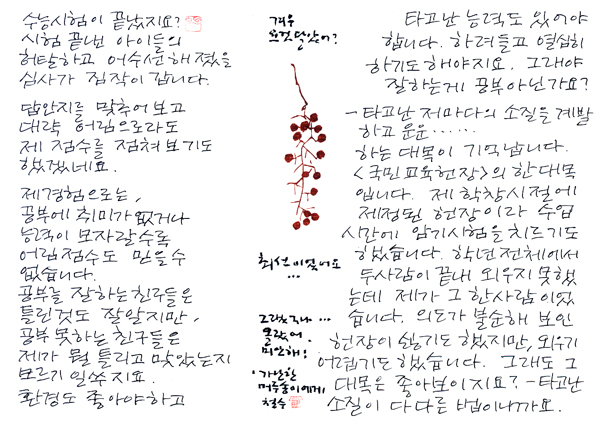 수능시험이 끝났지요?
시험 끝낸 아이들의
허탈하고 어수선해졌을
심사가 짐작이 갑니다.
답안지를 맞추어 보고
대략 어림으로라도
제 점수를 점쳐 보기도
했겠네요.
제 경험으로는,
공부에 취미가 없거나
능력이 모자랄수록
어림점수도 믿을 수
없습니다.
공부를 잘하는 친구들은
틀린것도 잘알지만,
공부 못하는 친구들은
제가 뭘 틀리고 맞았는지
모르기 일쑤지요.
환경도 좋아야하고
겨우
요것 달았어?
최선이었어요
...
그랬구나...
몰랐어.
미안해!
·가난한
머루송이에게
철수
타고난 능력도 있어야
합니다. 하려들고 열심히
하기도 해야지요. 그래야
잘하는게 공부아닌가요?
- 타고난 저마다의 소질을 계발
하고 운운……
하는 대목이 기억납니다.
<국민교육헌장>의 한대목
입니다. 제 학창시절에
제정된 헌장이라 수업
시간에 암기시험을 치르기도
했습니다. 학년전체에서
두사람이 끝내 외우지 못했
는데 제가 그 한사람이었
습니다. 의도가 불순해 보인
헌장이 싫기도 했지만, 외우기
어렵기도 했습니다. 그래도 그
대목은 좋아보이지요? - 타고난
소질이 다 다른 법이니까요.